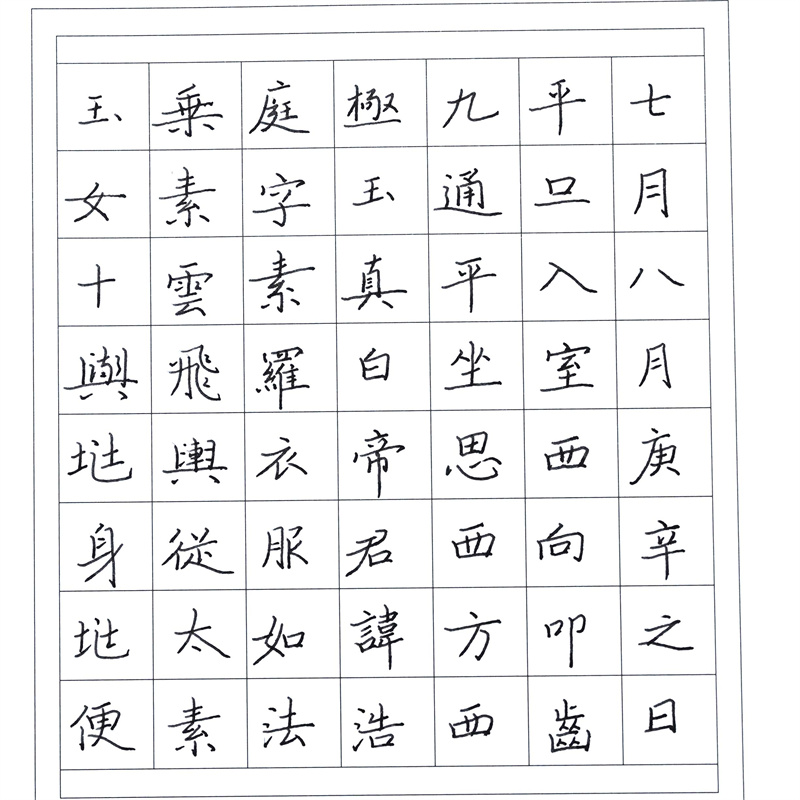 七月八月庚辛之日
平旦入室西向叩齒
九通平坐思西方西
極玉真白帝君諱浩
庭字素羅衣服如法
乗素雲飛輿從太素
玉女十與身便